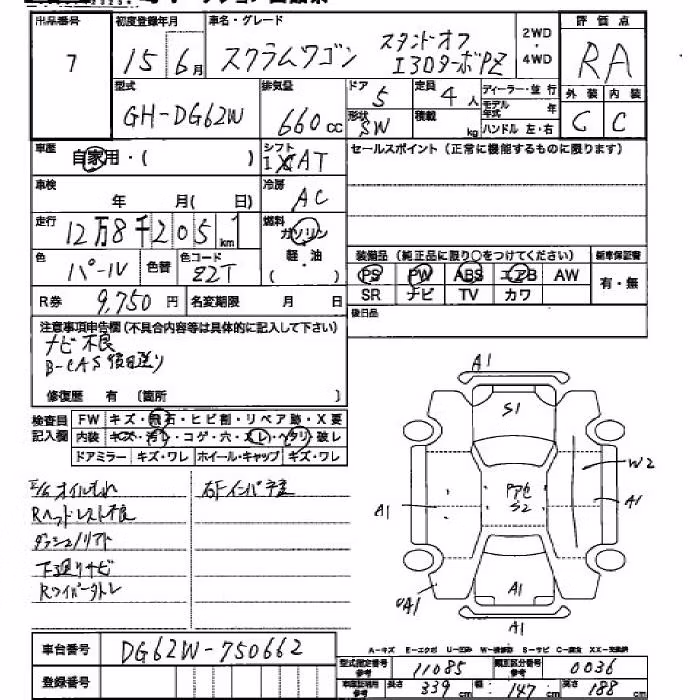 出品番号 初度登録年月 車名・グレード 2WD・4WD 評価点
7 15 6月 スクラムワゴン スタンドオフ RA
I30ターボPZ
型式 排気量 ドア 定員 ディーラー・並行 外装 内装
GH-DG62W 660cc 5 4人 モデル年式 年 C C
形状 SW 積載 kg ハンドル 左・右
車歴 自家用・( ) シフト IXAT セールスポイント(正常に機能するものに限ります)
車検 年 月( 日) 冷房 AC
走行 12万8千205km 燃料 ガソリン
軽・油
( )
色 パール 色替 色コード Z2T
装備品(純正品に限り○をつけてください) 新車保証書
PS PW ABS エアB AW 有・無
SR ナビ TV カワ
R券 9,750円 名変期限 月 日
後日品
注意事項申告欄(不具合内容等は具体的に記入して下さい)
ナビ不良
B-CAS後日送り
修復歴 有 〔箇所 〕
検査員記入欄 FW キズ・飛石・ヒビ割・リペア跡・X要
内装 キズ・汚れ・コゲ・穴・スレ・ヘタリ・破レ
ドアミラー キズ・ワレ ホイール・キャップ キズ・ワレ
E/Gオイルもれ
Rヘッドレスト不良
ダッシュ/リフト
下廻りサビ
Rワイパー
A1
S1
W2
A1
A1
S2
A1
A1
A1
A-キズ E-エクボ U-凹み W-補修跡 S-サビ C-腐食 XX-交換済
車台番号 DG62W-750662
登録番号
型式指定番号 参考 11085 類別区分番号 参考 0036
車庫証明用 参考 長さ 339cm 幅 147cm 高さ 188cm